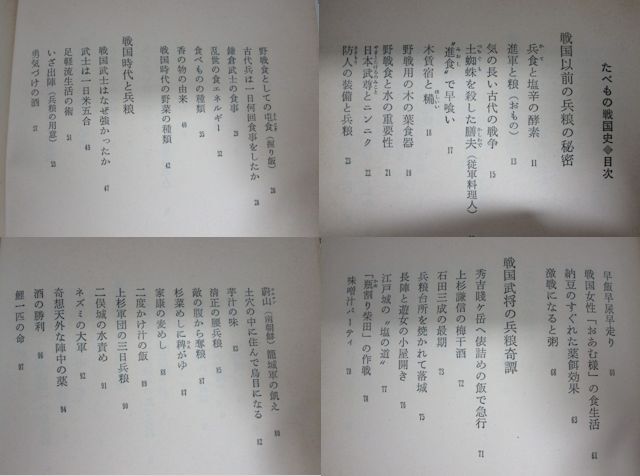 たべもの戦国史◆目次
戦国以前の兵粮の秘密
兵食と塩辛の酵素 11
進軍と粮（おもの） 13
気の長い古代の戦争 15
土蜘蛛を殺した膳夫（従軍料理人）
かしわで
“進食”で早喰い
木賃宿と糒 16
ほしいい
野戦用の木の葉食器 18
野戦食と水の重要性 21
日本武尊とニンニク 22
防人の装備と兵粮 25
野戦食としての屯食（握り飯） 26
古代兵は一日何回食事をしたか 28
鎌倉武士の食事 29
乱世の食エネルギー 32
食べもの種類 35
香の物の由来 40
戦国時代の野菜の種類 42
戦国時代と兵粮
戦国武士はなぜ強かったか 47
武士は一日米五合 48
足軽流生活の術 51
いざ出陣（兵粮の用意） 53
勇気づけの酒 57
早飯早屎早走り 60
戦国女性「おあむ様」の食生活 61
納豆のすぐれた薬餌効果 63
激戦になると粥 68
戦国武将の兵粮奇譚
秀吉賤ヶ岳へ俵詰めの飯で急行 71
上杉謙信の梅干酒 72
石田三成の最期 73
兵粮台所を焼かれて落城 75
長陣と遊女の小屋開き 76
江戸城の“塩の道” 77
「瓶割り柴田」の作戦 78
味噌汁パーティ 78
蔚山（南朝鮮）籠城軍の飢え 80
土穴の中に住んで鳥目になる 82
芋汁の味 83
清正の腰兵粮 85
敵の腹から奪粮 87
杉菜めしに稗がゆ 87
家康の麦めし 88
二度かけ汁の飯 89
上杉軍団の三日兵粮 90
二俣城の水責め 91
ネズミの大軍 92
奇想天外な陣中の菜 94
酒の勝利 96
鯉一匹の命 97